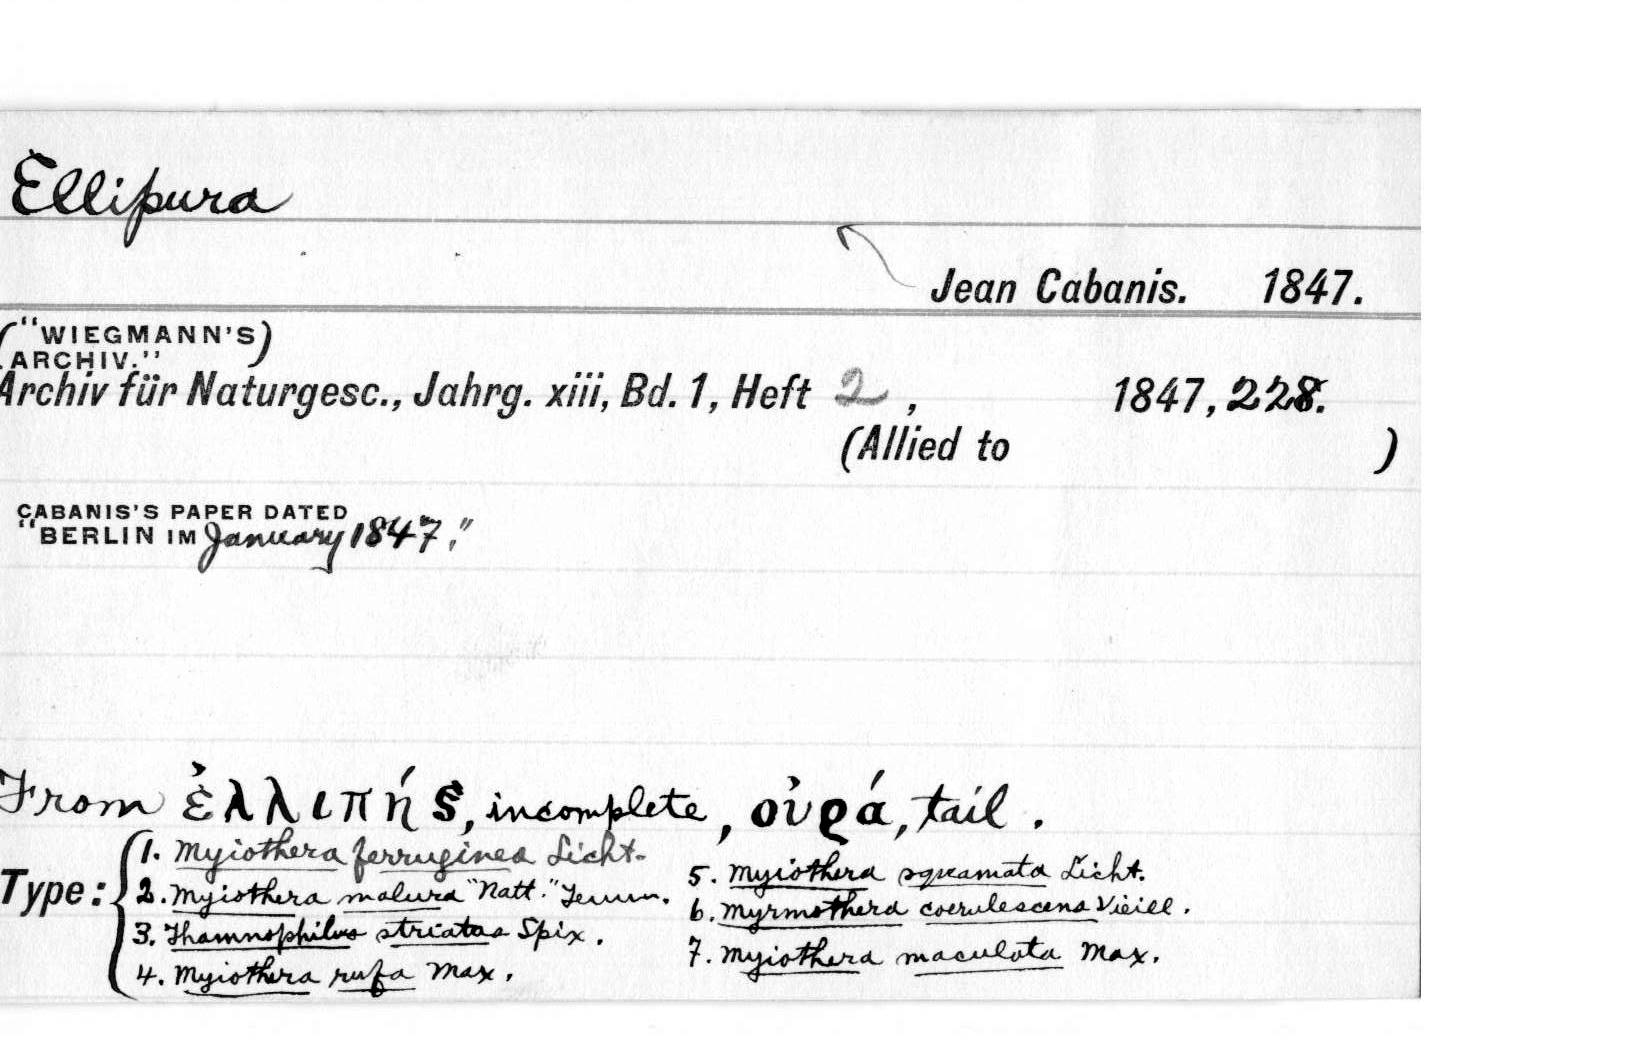 Ellipura
Jean Cabanis. 1847.
("WIEGMANN'S)
ARCHIV."
Archiv für Naturgesc., Jahrg. xiii, Bd. 1, Heft 2, 1847, 228.
(Allied to )
CABANIS'S PAPER DATED
"BERLIN IM January 1847."
From ἐλλιπής, incomplete, οὐρά, tail.
Type: 1. Myiothera ferruginea Licht.
2. Myiothera malura "Natt." Temm.
3. Thamnophilus striatus Spix.
4. Myiothera rufa Max.
5. Myiothera squamata Licht.
6. Myrmothera coerulescens Vieill.
7. Myiothera maculata Max.